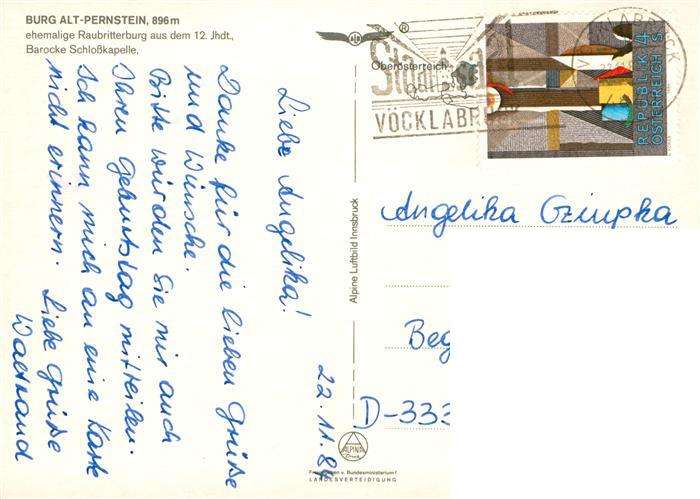 BURG ALT-PERNSTEIN, 896 m
ehemalige Raubritterburg aus dem 12. Jhdt.,
Barocke Schloßkapelle,
Oberösterreich
22. 11. 84
Liebe Angelika!
Danke für die lieben Grüße
und Wünsche.
Bitte würden Sie mir auch
Ihren Geburtstag mitteilen.
Ich kann mich an eine Karte
nicht erinnern. Liebe Grüße
Waltraud
Alpine Luftbild Innsbruck
ALPINE
Freigegeben v. Bundesministerium f.
LANDESVERTEIDIGUNG
®
Stadt
VÖCKLABRUCK
VÖCKLABRUCK
REPUBLIK 4
ÖSTERREICH S
Angelika
Beg
D-333